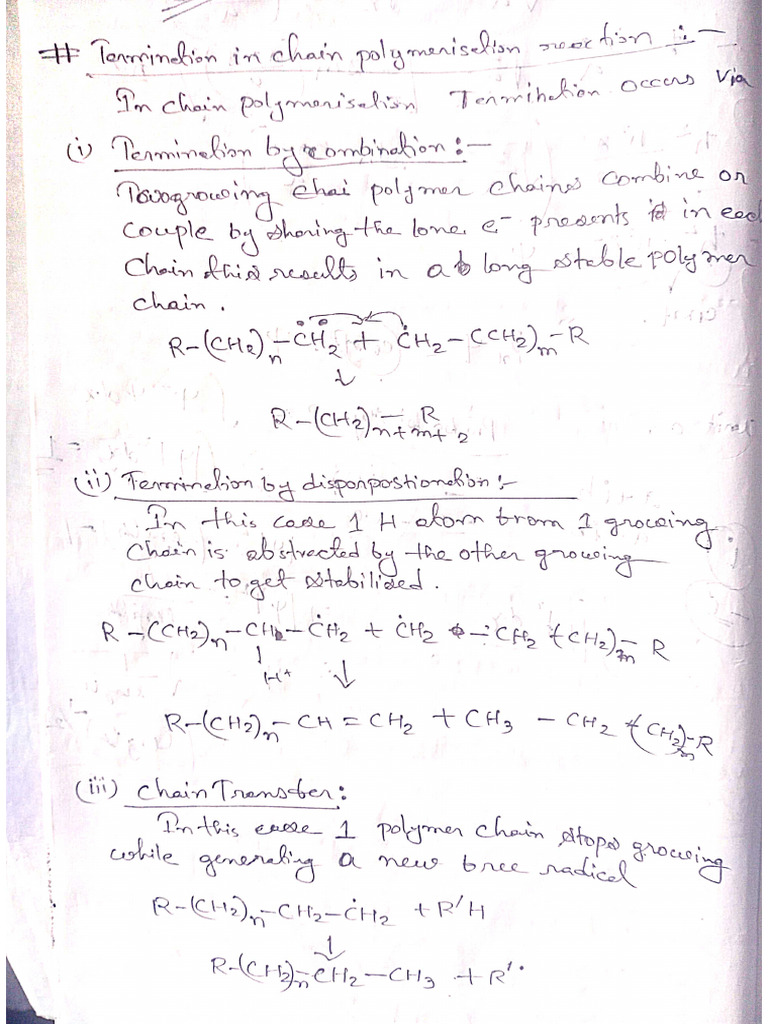 # Termination in chain polymerisation reaction :-
In chain polymerisation Termination occurs via
(i) Termination by combination :-
Two growing chai polymer chains combine or
couple by sharing the lone e⁻ presents in each
chain this results in a long stable polymer
chain.
R-(CH₂)n-ĊH₂ + ĊH₂-(CH₂)m-R
↓
R-(CH₂)n+m+2-R
(ii) Termination by disporpostionation :-
In this case 1 H atom from 1 growing
chain is abstracted by the other growing
chain to get stabilised.
R-(CH₂)n-CH-ĊH₂ + ĊH₂-CH₂-(CH₂)m-R
H⁺ ↓
R-(CH₂)n-CH=CH₂ + CH₃-CH₂-(CH₂)m-R
(iii) Chain Transfer:
In this case 1 polymer chain stops growing
while generating a new free radical
R-(CH₂)n-CH₂-ĊH₂ + R'H
↓
R-(CH₂)n-CH₂-CH₃ + R'•